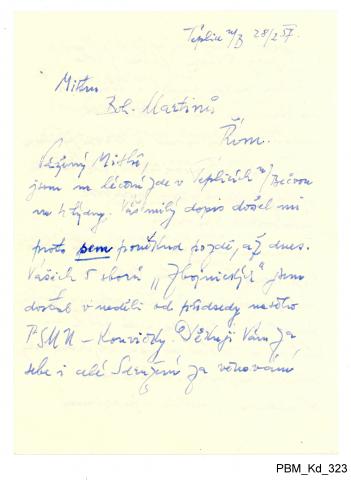 Teplice n/B 28/2 57.
Mistru
Boh. Martinů
Řím.
Vážený Mistře,
jsem na léčení zde v Teplicích n/Bečvou
na 4 týdny. Váš milý dopis došel mi
proto sem poněkud pozdě, až dnes.
Vašich 5 sborů „Zbojnických" jsem
dostal v neděli od předsedy našeho
PSMU – Konvičky. Děkuji Vám za
sebe i celé Sdružení za věnování
PBM_Kd_323